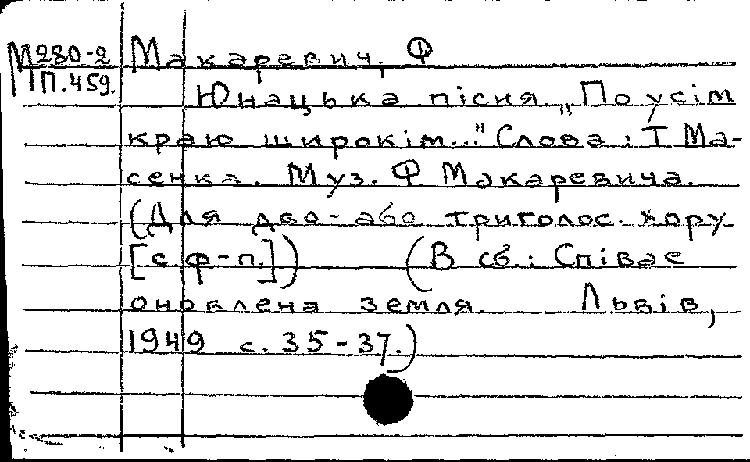 М280-2
П.459.
Макаревич, Ф
Юнацька пісня „По усім
краю широкім..." Слова: Т Ма-
сенка. Муз. Ф Макаревича.
(Для дво- або триголос. хору
[с ф-п.]) (В сб.: Співає
оновлена земля. Львів,
1949 с. 35-37.)